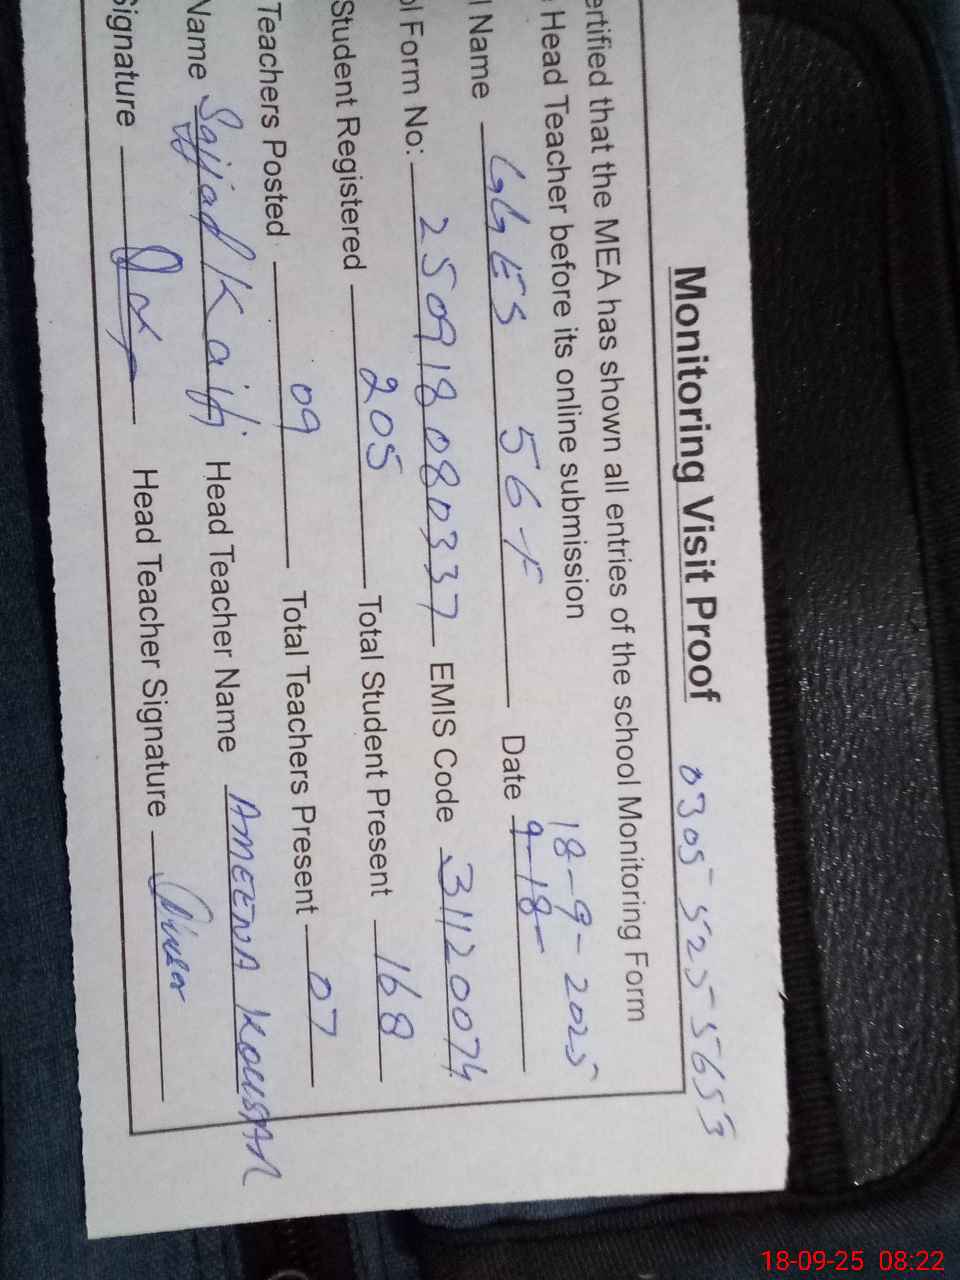 Monitoring Visit Proof 0305 5255653
ertified that the MEA has shown all entries of the school Monitoring Form
Head Teacher before its online submission
18-9-2025
l Name GGES 56 F Date 9-18-
ol Form No: 250918080337 EMIS Code 31120074
Student Registered 205 Total Student Present 168
Teachers Posted 09 Total Teachers Present 07
Name Sajjad Kaifi Head Teacher Name AMEENA KOUSAR
Signature Head Teacher Signature
18-09-25 08:22